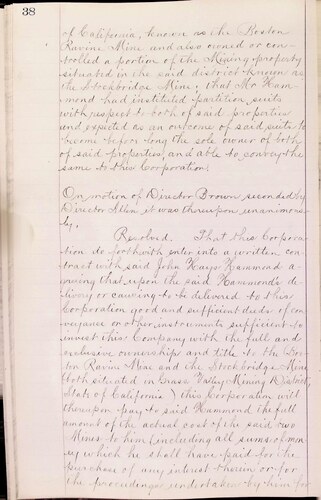 38
of California, known as the Boston
Ravine Mine and also owned or con-
trolled a portion of the Mining property
situated in the said district known as
the Stockbridge Mine; that Mr Ham-
mond had instituted partition suits
with respect to both of said properties
and expected as an outcome of said suits to
become before long the sole owner of both
of said properties, and able to convey the
same to this Corporation.
On motion of Director Brown seconded by
Director Allen it was thereupon unanimous-
ly,
Resolved. That this Corpora-
tion do forthwith enter into a written con-
tract with said John Hays Hammond a-
greeing that upon the said Hammond's de-
livery or causing to be delivered to this
Corporation good and sufficient deeds of con-
veyance or other instruments sufficient to
invest this Company with the full and
exclusive ownership and title to the Bos-
ton Ravine Mine and the Stockbridge Mine
(both situated in Grass Valley Mining District,
State of California) this Corporation will
thereupon pay to said Hammond the full
amount of the actual cost of the said two
Mines to him (including all sums of mon-
ey which he shall have paid for the
purchase of any interest therein or for
the proceedings undertaken by him for